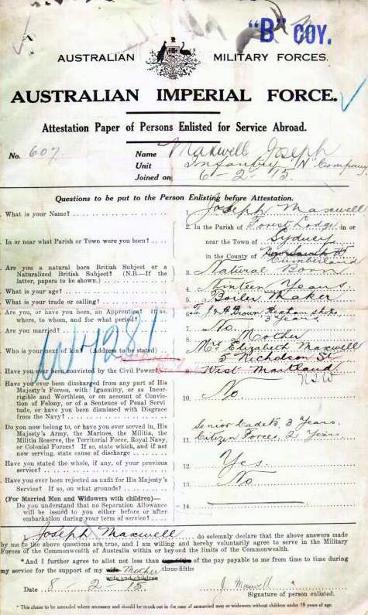 "B" COY.
AUSTRALIAN MILITARY FORCES.
AUSTRALIAN IMPERIAL FORCE.
Attestation Paper of Persons Enlisted for Service Abroad.
No. 607 Name Maxwell Joseph
Unit Infantry "H" Company
Joined on 6-2-15
Questions to be put to the Person Enlisting before Attestation.
What is your Name? Joseph Maxwell
In or near what Parish or Town were you born? 2. In the Parish of Forest Lodge in or
near the Town of Sydney
in the County of Cumberland
Are you a natural born British Subject or a
Naturalized British Subject? (N.B.—If the
latter, papers to be shown.) 3. Natural Born
What is your age? 4. Ninteen Years
What is your trade or calling? 5. Boiler Maker
Are you, or have you been, an Apprentice? If so,
where, to whom, and for what period? 3 Years
Are you married? 7. No.
Mother
Who is your next of kin? (Address to be stated) Mrs Elizabeth Maxwell
5 Nicholson St
West Maitland
N.S.W
Have you ever been convicted by the Civil Power?
Have you ever been discharged from any part of His
Majesty's Forces, with Ignominy, or as Incor-
rigible and Worthless, or on account of Convic-
tion of Felony, or of a Sentence of Penal Servi-
tude, or have you been dismissed with Disgrace
from the Navy? 10. No
Do you now belong to, or have you ever served in, His
Majesty's Army, the Marines, the Militia, the
Militia Reserve, the Territorial Force, Royal Navy,
or Colonial Forces? If so, state which, and if not
now serving, state cause of discharge 11. Senior Cadets, 3 Years.
Citizen Forces, 2 Years
Have you stated the whole, if any, of your previous
service? 12. Yes.
Have you ever been rejected as unfit for His Majesty's
Service? If so, on what grounds? 13. No
(For Married Men and Widowers with children)—
Do you understand that no Separation Allowance
will be issued to you either before or after
embarkation during your term of service? 14.
I, Joseph Maxwell, do solemnly declare that the above answers made
by me to the above questions are true, and I am willing and hereby voluntarily agree to serve in the Military
Forces of the Commonwealth of Australia within or beyond the limits of the Commonwealth.
*And I further agree to allot not less than of the pay payable to me from time to time during
my service for the support of my wife Mother three fifths
wife and children
Date 2 15. J. Maxwell
Signature of person enlisted.